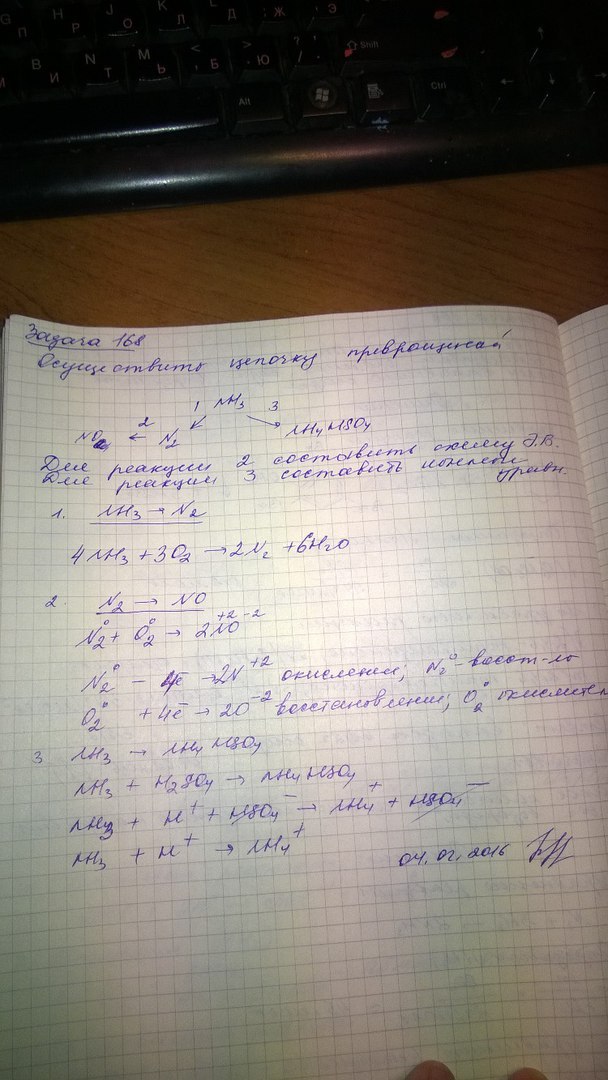 Г Н
О Р Л Д Ж Э
В И N T М Ь < Б > Ю
Shift
Alt
Ctrl
Задача 168
Осуществить цепочку превращений
1 NH3 3
NO ←2 N2 NH4HSO4
Для реакции 2 составить схему Э.Б.
Для реакции 3 составить ионное уравн.
1. NH3 → N2
4NH3 + 3O2 → 2N2 + 6H2O
2. N2 → NO
N2⁰ + O2⁰ → 2N⁺²O⁻²
N2⁰ - 4ē → 2N⁺² окисление; N2⁰ - восст-ль
O2⁰ + 4ē → 2O⁻² восстановление; O2⁰ окислитель
3 NH3 → NH4HSO4
NH3 + H2SO4 → NH4HSO4
NH3 + H⁺ + HSO4⁻ → NH4⁺ + HSO4⁻
NH3 + H⁺ → NH4⁺
04.02.2016